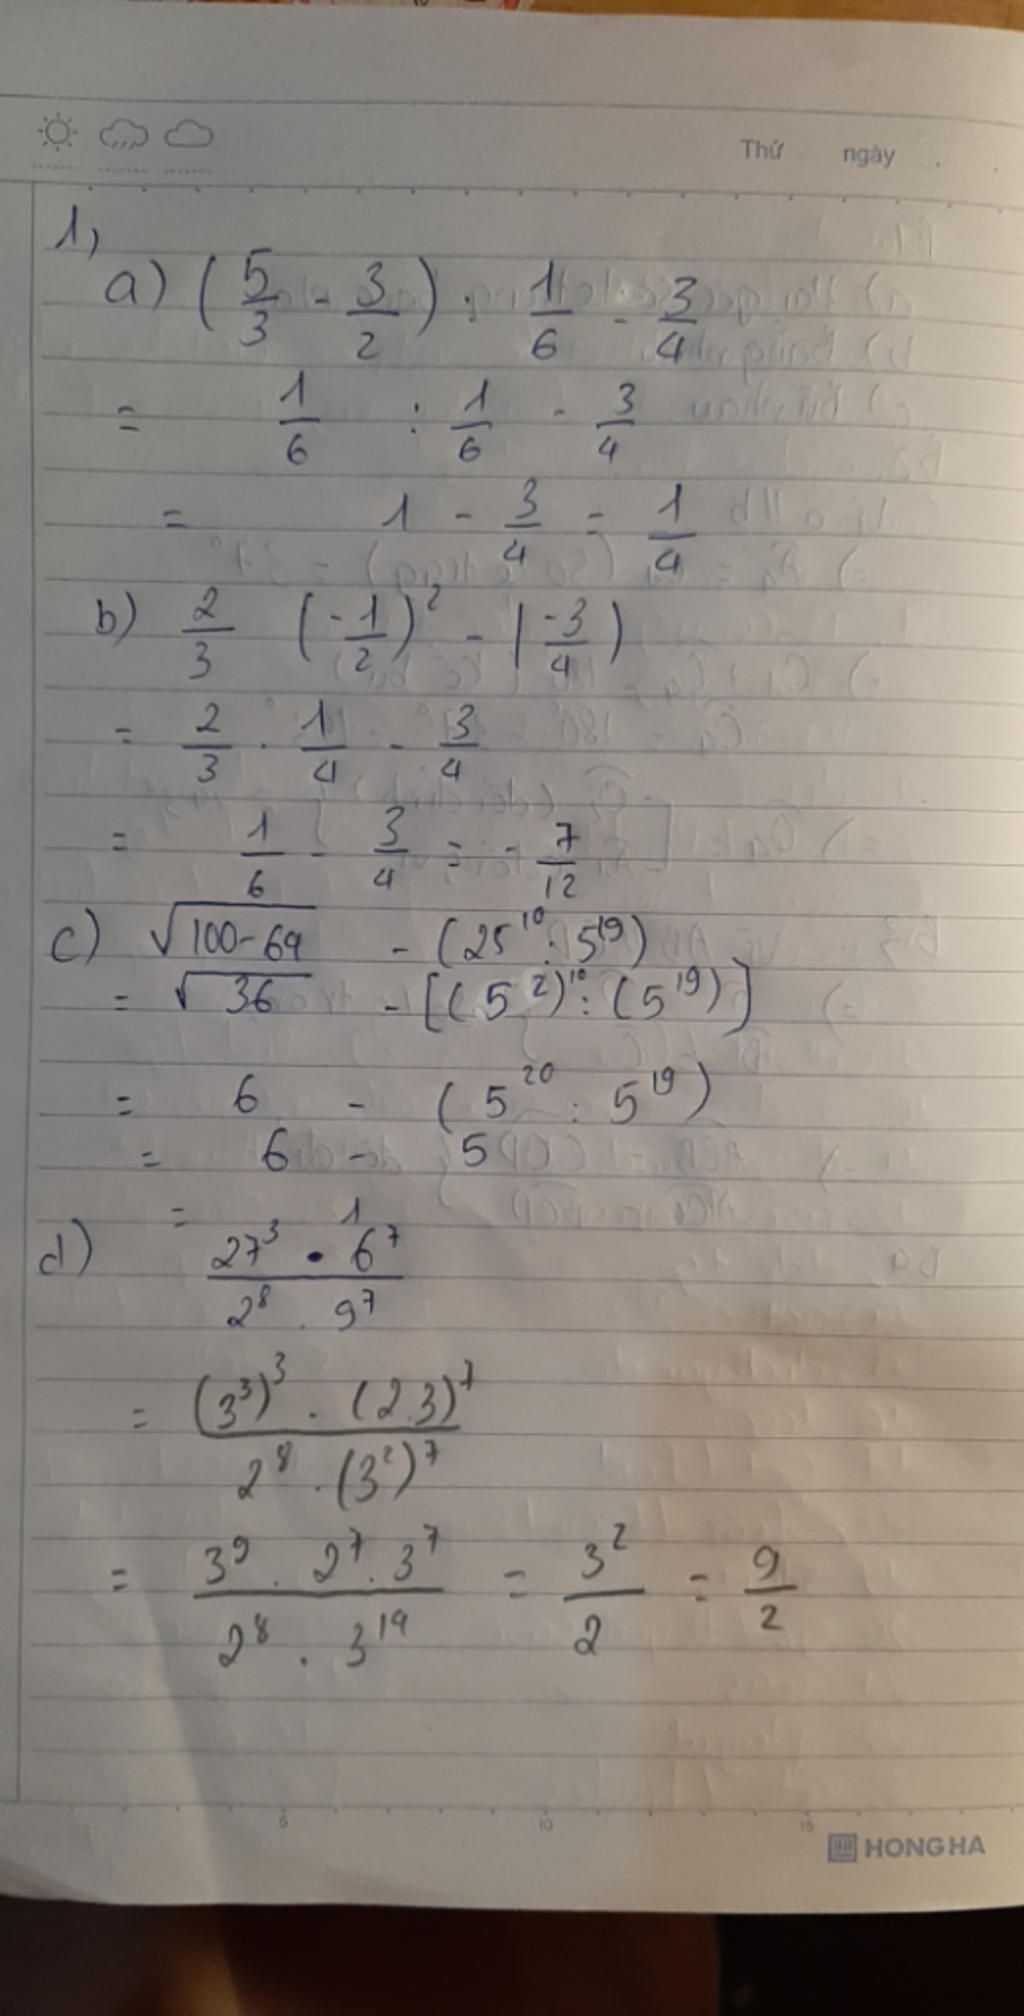 Thứ ngày
1,
a) (5/3 - 3/2) : 1/6 - 3/4
= 1/6 : 1/6 - 3/4
= 1 - 3/4 = 1/4
b) 2/3 (-1/2)² - |-3/4)
= 2/3 . 1/4 - 3/4
= 1/6 - 3/4 = - 7/12
c) √100-64 - (25¹⁰ : 5¹⁹)
= √36 - [(5²)¹⁰ : (5¹⁹)]
= 6 - (5²⁰ : 5¹⁹)
= 6 - 5
= 1
d) 27³ . 6⁷ / 2⁸ . 9⁷
= (3³)³ . (2.3)⁷ / 2⁸ . (3²)⁷
= 3⁹ . 2⁷ . 3⁷ / 2⁸ . 3¹⁴ = 3²/2 = 9/2
5 10 15
HONG HA